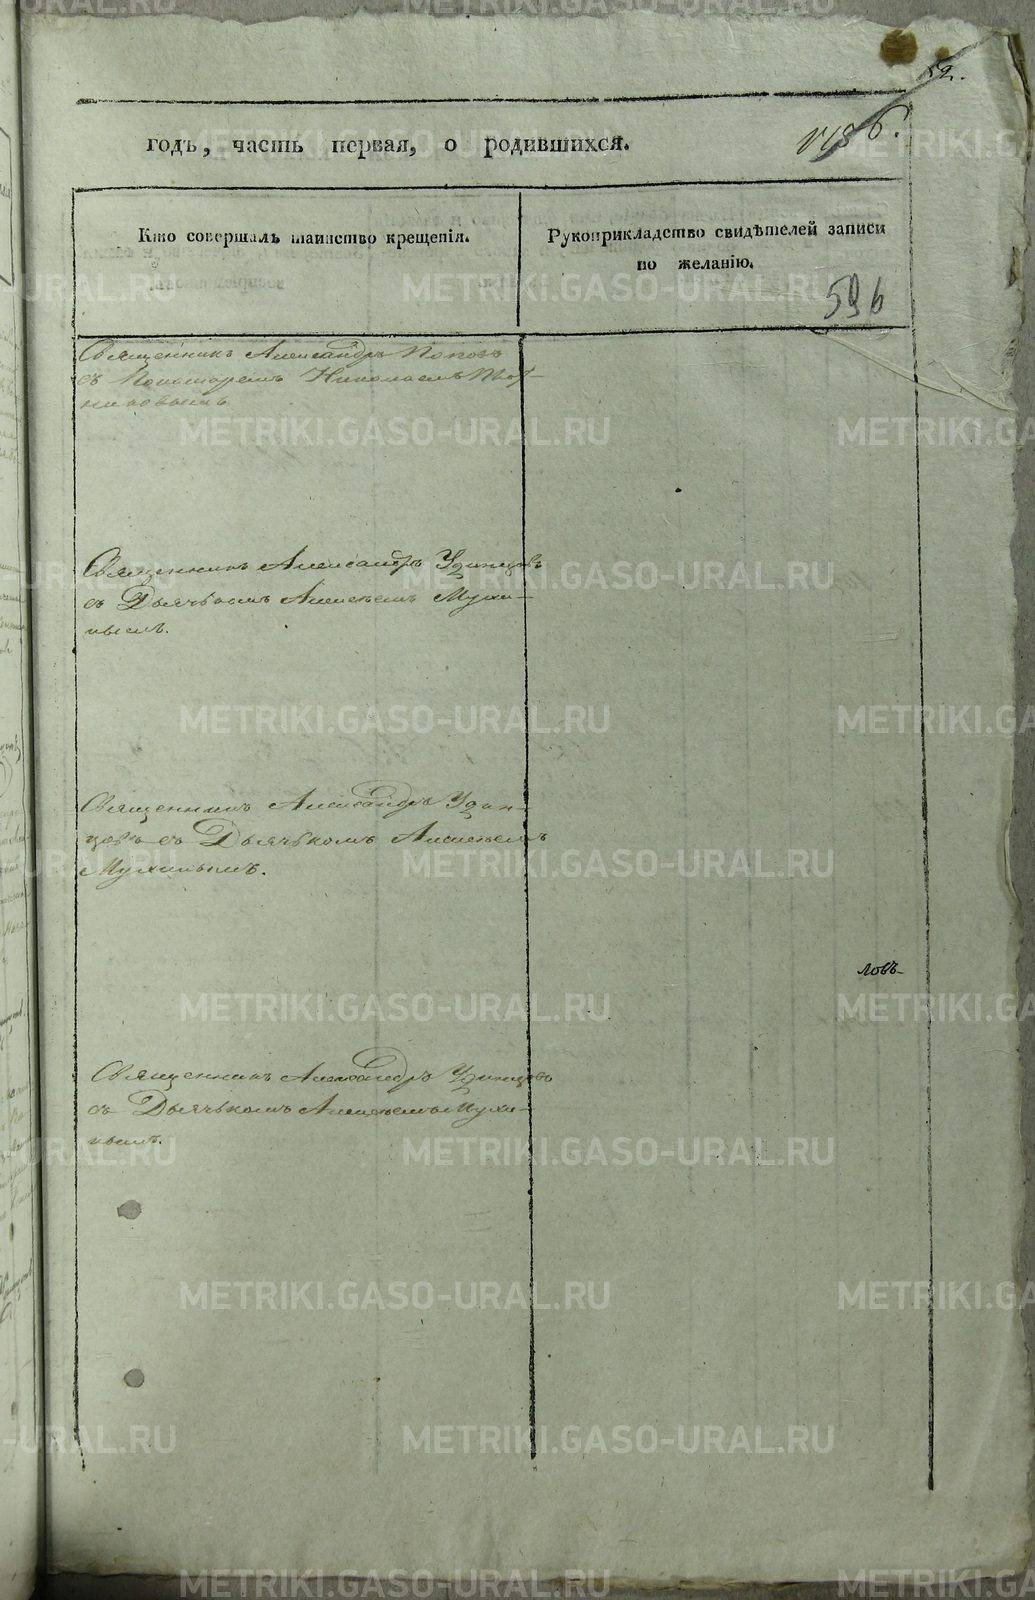 52.
годъ, часть первая, о родившихся.
Кто совершалъ таинство крещенія.
Рукоприкладство свидѣтелей записи
по желанію.
596
Священникъ Александръ Поповъ
съ Пономаремъ Николаемъ
Священникъ Александръ Удинцовъ
съ Дьячькомъ Алексѣемъ Мухи-
нымъ.
Священникъ Александръ Удин-
цовъ съ Дьячькомъ Алексѣемъ
Мухинымъ.
ловъ
Священникъ Александръ Удинцовъ
съ Дьячькомъ Алексѣемъ Мухи-
нымъ.
METRIKI.GASO-URAL.RU